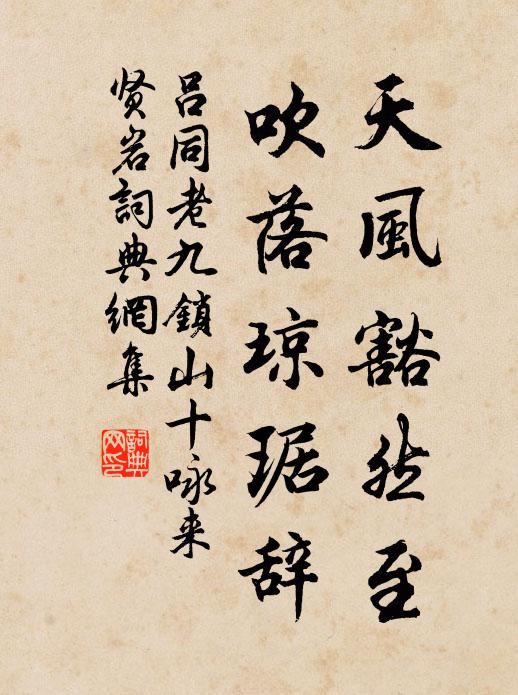 天風豁然至
吹落琼琚辞
吕同老九鎖山十咏来
贤岩詞典網集
詞典
网印